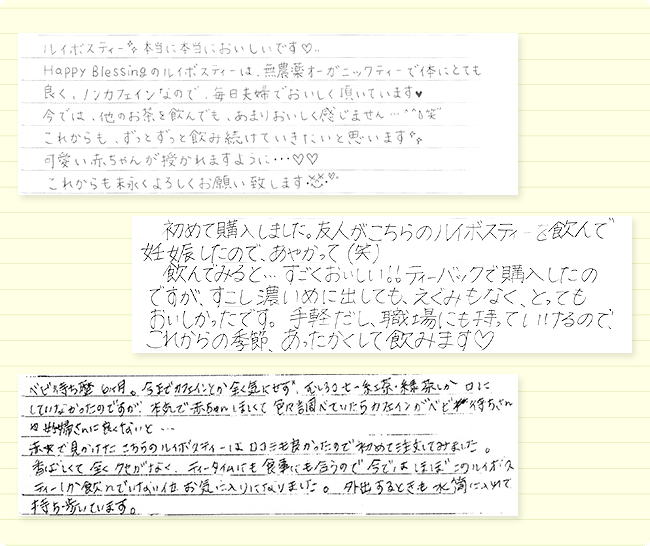 ルイボスティー本当に本当においしいです♡..
Happy Blessingのルイボスティーは、無農薬オーガニックティーで体にとても
良く、ノンカフェインなので、毎日夫婦でおいしく頂いています♥
今では、他のお茶を飲んでも、あまりおいしく感じません…^^;笑
これからも、ずっとずっと飲み続けていきたいと思います
可愛い赤ちゃんが授かれますように・・・♡♡
これからも末永くよろしくお願い致します
初めて購入しました。友人がこちらのルイボスティーを飲んで
妊娠したので、あやかって(笑)
飲んでみると…すごくおいしい!!ティーバックで購入したの
ですが、すこし濃いめに出しても、えぐみもなく、とっても
おいしかったです。手軽だし、職場にも持っていけるので、
これからの季節、あったかくして飲みます♡
ベビ待ち歴6ヶ月。今までカフェインとか全く気にせず、むしろコーヒー・紅茶・緑茶しか口に
していなかったのですが、本気で赤ちゃんほしくて色々調べていたらカフェインがベビ待ちさん
や妊婦さんに良くないと…
で見かけたこちらのルイボスティーは口コミも良かったので初めて注文してみました。
香ばしくて全くクセがなく、ティータイムにも食事にも合うので今ではほぼこのルイボス
ティーしか飲んでいない位お気に入りになりました。外出するときも水筒に入れて
持ち歩いています。